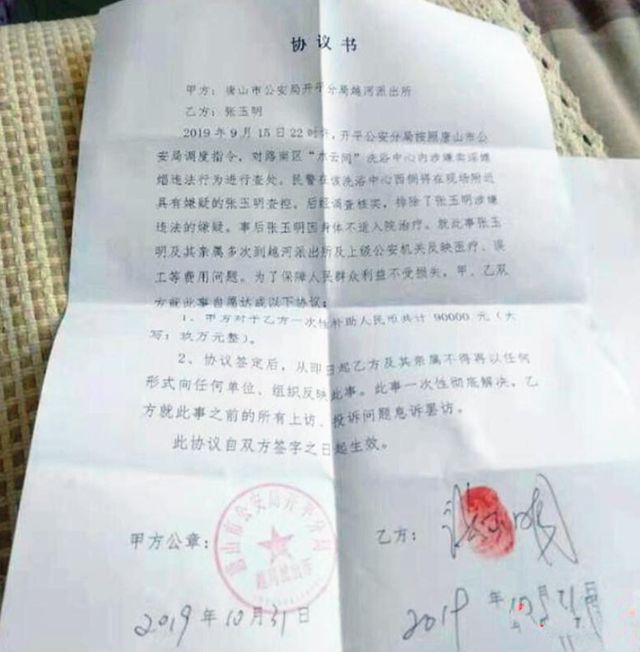 协议书
甲方：唐山市公安局开平分局越河派出所
乙方：张玉明
2019年9月15日22时许，开平公安分局按照唐山市公
安局调度指令，对路南区“水云间”洗浴中心内涉嫌卖淫嫖
娼违法行为进行查处。民警在该洗浴中心西侧将在现场附近
具有嫌疑的张玉明查控。后经调查核实，排除了张玉明涉嫌
违法的嫌疑。事后张玉明因身体不适入院治疗。就此事张玉
明及其亲属多次到越河派出所及上级公安机关反映医疗、误
工等费用问题。为了保障人民群众利益不受损失，甲、乙双
方就此事自愿达成以下协议：
1、甲方对于乙方一次性补助人民币共计 90000 元（大
写：玖万元整）。
2、协议签定后，从即日起乙方及其亲属不得再以任何
形式向任何单位、组织反映此事。此事一次性彻底解决，乙
方就此事之前的所有上访、投诉问题息诉罢访。
此协议自双方签字之日起生效。
甲方公章：
唐山市公安局开平分局
越河派出所
乙方：
张玉明
2019年10月31日
2019年10月